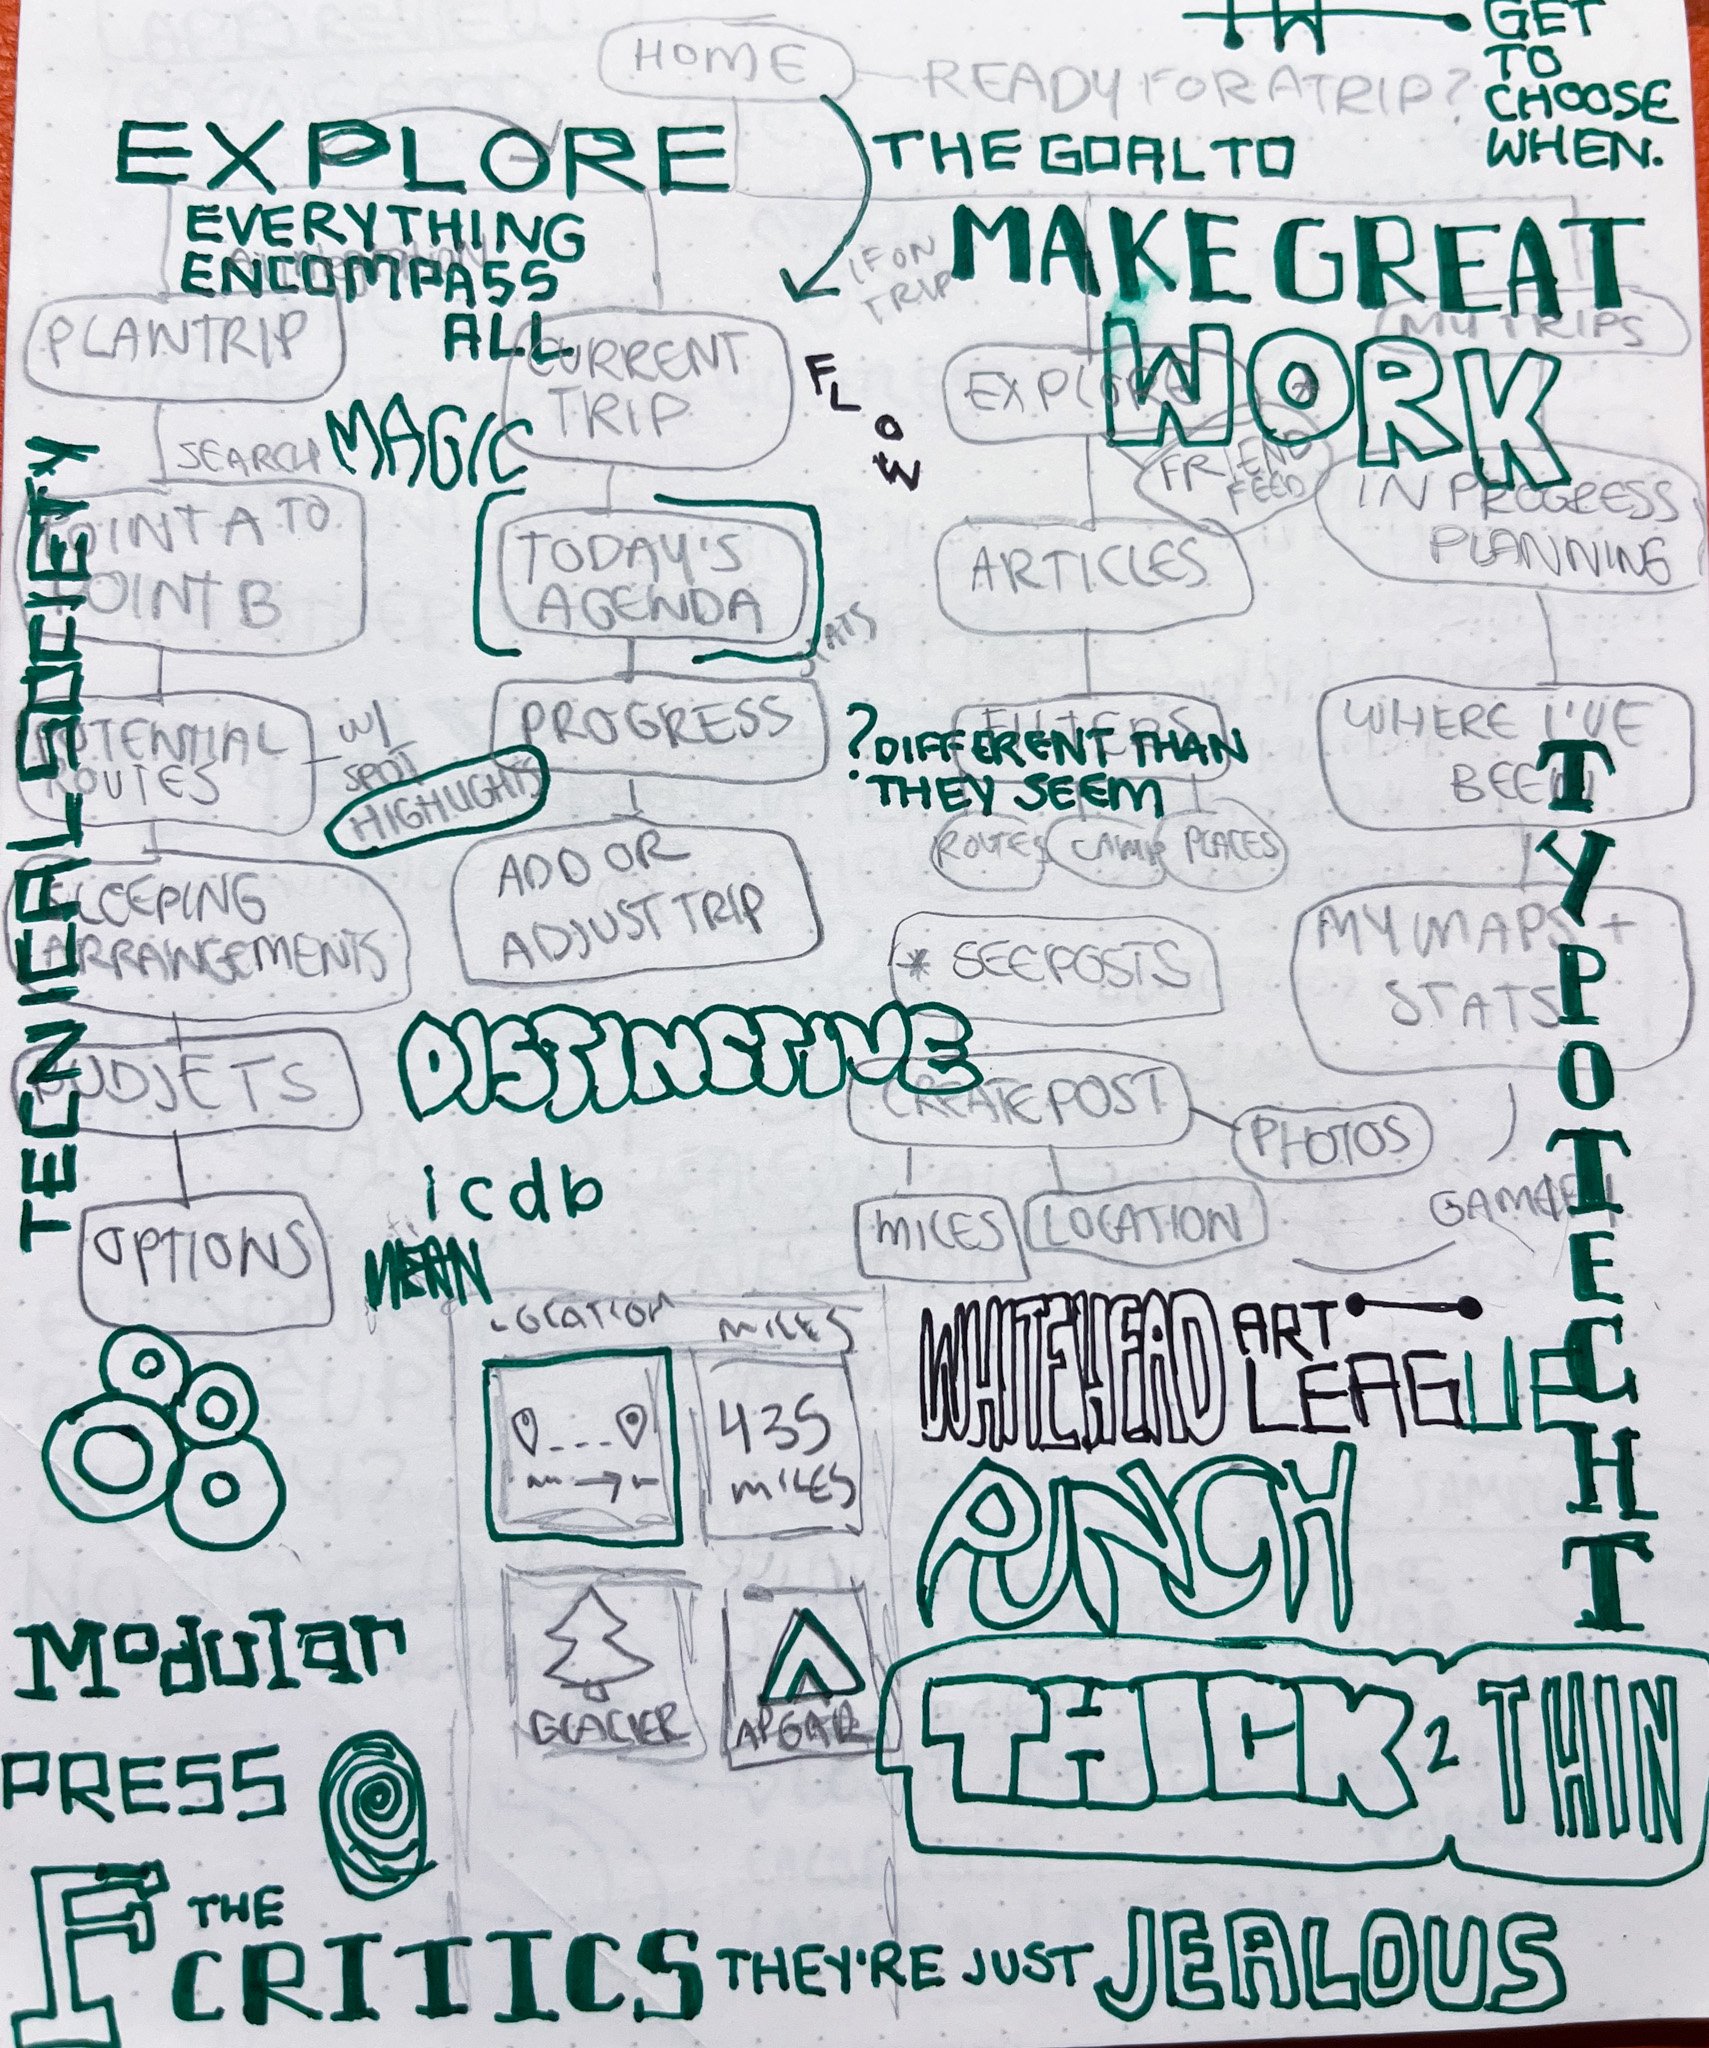 GET
TO
CHOOSE
WHEN.
HOME
READY FOR A TRIP?
EXPLORE
THE GOAL TO
EVERYTHING
ENCOMPASS
ALL
MAKE GREAT
WORK
IF ON
TRIP
PLAN TRIP
CURRENT
TRIP
FLOW
EXPLORE *
MY TRIPS
SEARCH
MAGIC
FRIEND
FEED
IN PROGRESS
PLANNING
POINT A TO
POINT B
TODAY'S
AGENDA
ARTICLES
STATS
TECNICAL SOCIETY
POTENTIAL
ROUTES
W/
SPOT
HIGHLIGHTS
PROGRESS
FILTERS
? DIFFERENT THAN
THEY SEEM
WHERE I'VE
BEEN
ROUTES
CAMP
PLACES
SLEEPING
ARRANGEMENTS
ADD OR
ADJUST TRIP
* SEE POSTS
MY MAPS +
STATS
TYPOTECHT
BUDJETS
DISTINCTIVE
CREATE POST
PHOTOS
icdb
OPTIONS
MILES
LOCATION
LOCATION
MILES
435
MILES
WHITEHEAD ART
LEAGUE
PUNCH
GLACIER
APGAR
Modular
PRESS
THICK 2 THIN
F THE
CRITICS THEY'RE JUST JEALOUS